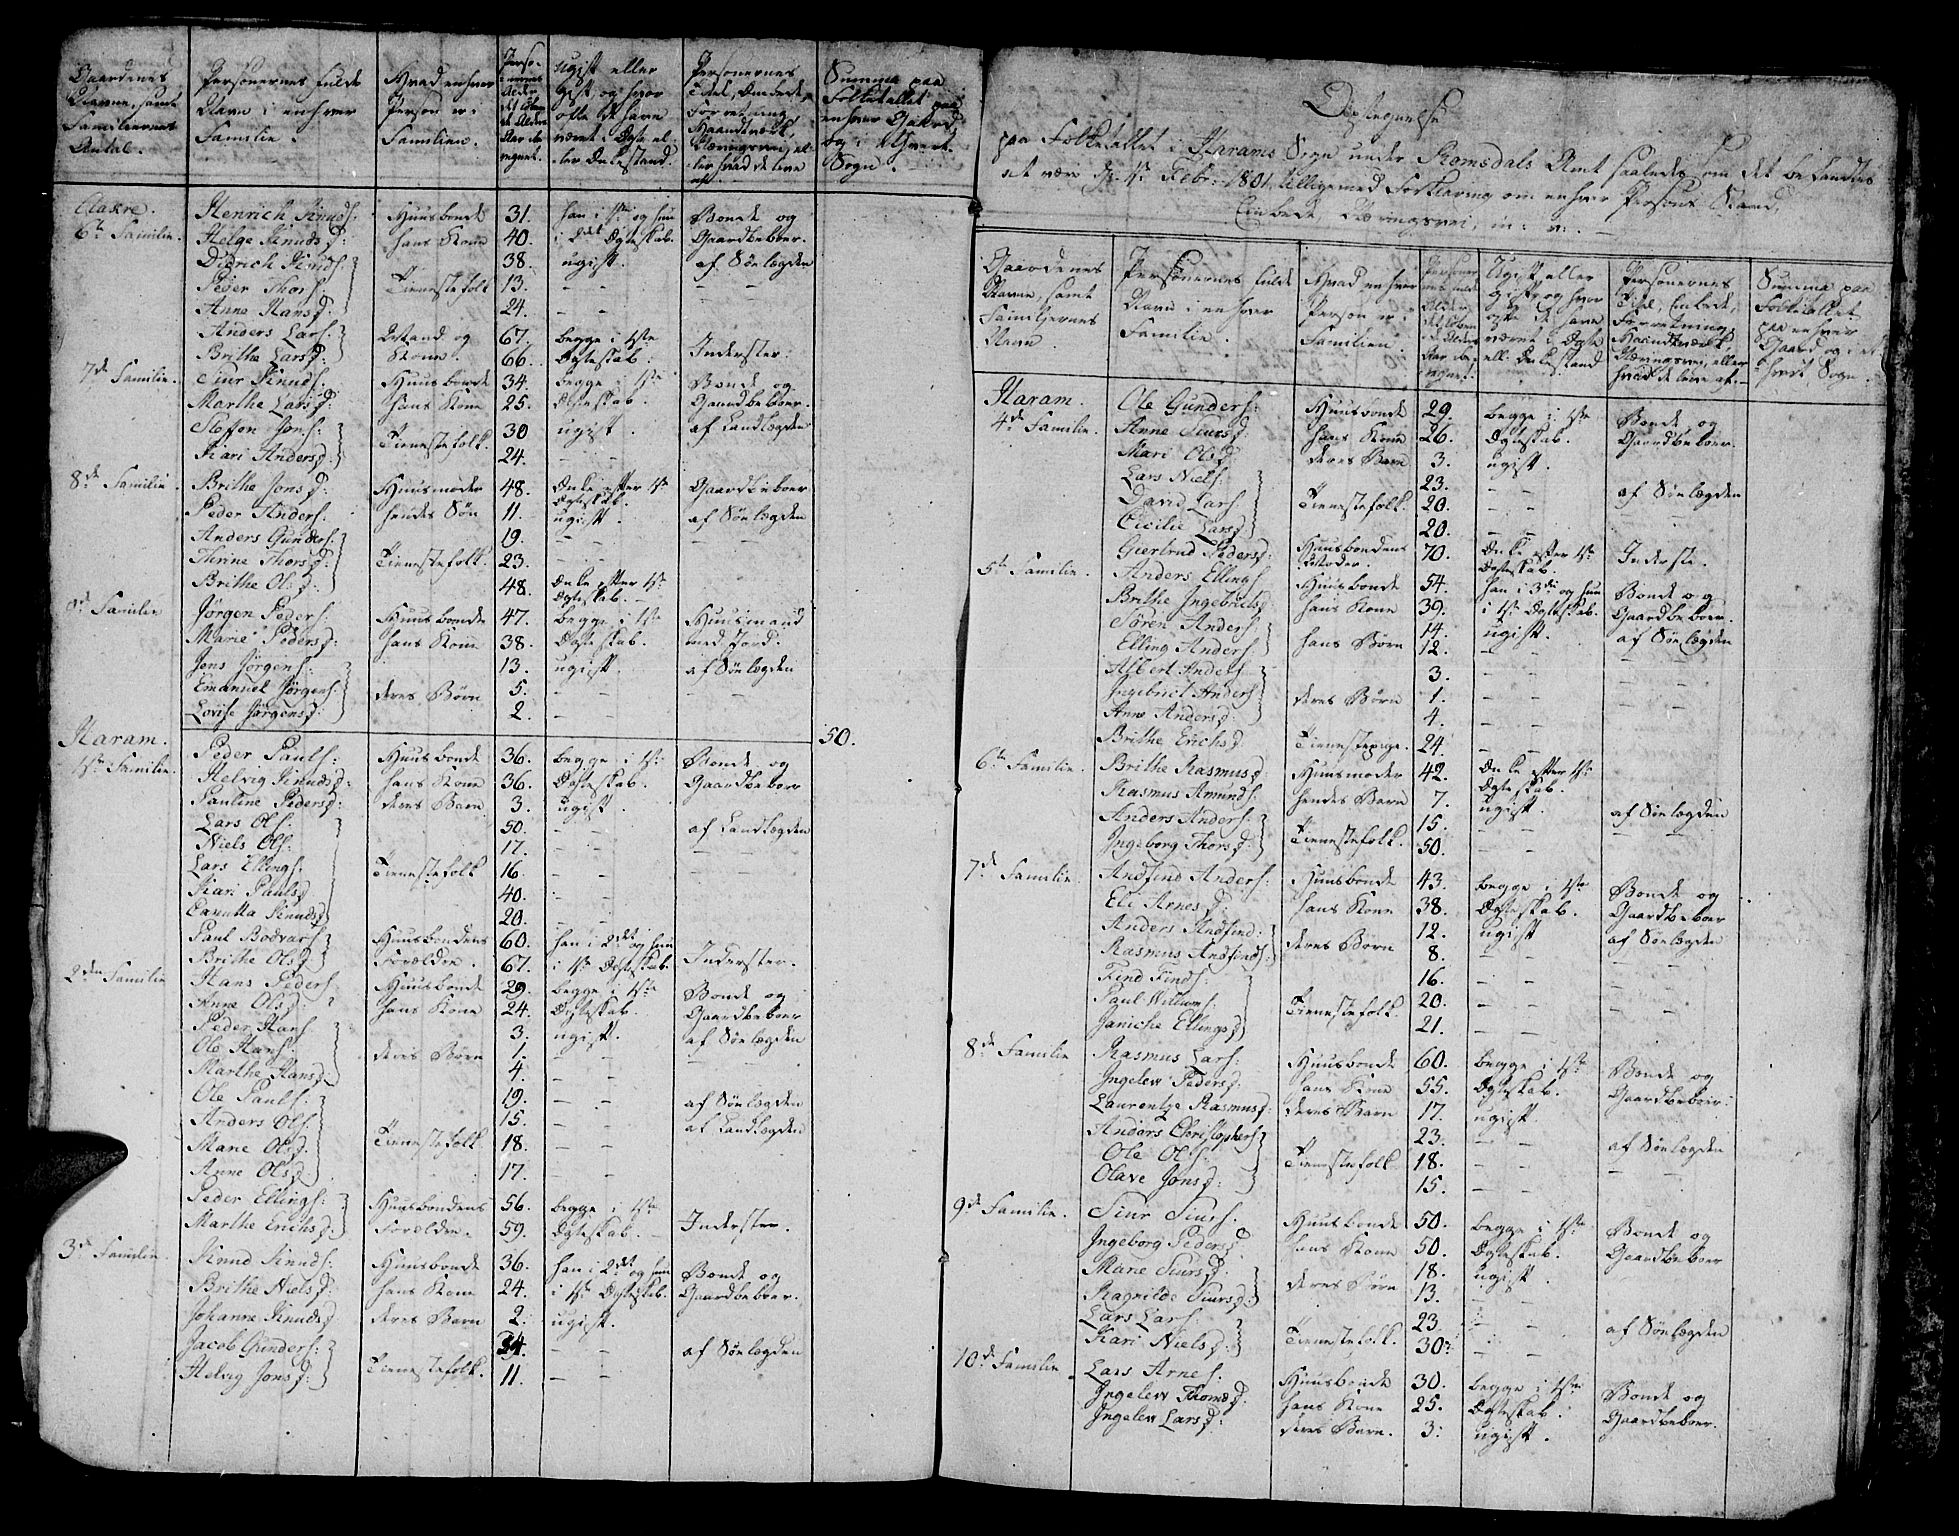 Gaardenes Navne, samt Familiernes Antal.
Personernes fulde Navn i enhver Familie.
Hvad enhver Person er i Familien.
Ugift eller gift og hvor ofte de have været i Ægte eller Enkestand.
Personernes Titel, Embede, Forretning, Haandværk, Næringsvei, eller hvad de leve af.
Summa paa Folketallet paa enhver Gaard og i hvert Sogn.
6te Familie. Henrich Knuds: Huusbonde 31. han i 1te og hun Bonde og
Helge Knudsd: hans Kone 40. i 2det Ægteskab. Gaardbeboer.
Didrich Knuds: 38. ugift. af Søelægden
Peder Thors: Tienestefolk 13. – – – –
Anne Hansd: 24. – –
Anders Lars: 67. begge i 1te Inderster.
Brithe Larsd: Kone. 66. Ægteskab.
7de Familie. Siur Knuds: Huusbonde 34. begge i 1te Bonde og
Marthe Larsd: hans Kone 25. Ægteskab. Gaardbeboer.
Steffen Jons: Tienestefolk. 30 ugift. af Landlægden
Kari Andersd: 24. – –
8de Familie. Brithe Jonsd: Huusmoder 48. Enke efter 1te Gaardbeboer
Ægteskab.
Peder Anders: hendes Søn 11. ugift. af Søelægden
Anders Gunders: 19. – – – –
Thrine Thorsd: Tienestefolk. 23. – –
Brithe Olsd: 48. Enke efter 1te
Ægteskab. –
9de Familie Jørgen Peders: Huusbonde 47. begge i 1te Huusmand
Marie Pedersd: hans Kone 38. Ægteskab. med Jord.
Jens Jørgens: 13. ugift. af Søelægden
Emanuel Jørgens: deres Børn 5. – – – –
Lovise Jørgensd: 2. – –
Haram. 50.
1te Familie. Peder Pauls: Huusbonde 36. begge i 1te Bonde og
Helvig Knudsd: hans Kone 36. Ægteskab. Gaardbeboer
Pauline Pedersd: deres Barn 3. ugift.
Lars Ols: 50. – – af Landlægden
Niels Ols: 17. – – – –
Lars Ellings: Tienestefolk 16. – –
Kari Paulsd 40. – –
Knudsd: 20. – –
Paul Bodvars: Huusbondens 60. han i 2det og hun Inderster.
Brithe Olsd: Forældre. 67. i 1te Ægteskab.
2den Familie Hans Peders: Huusbonde 29. begge i 1te Bonde og
Anne Olsd: hans Kone 24. Ægteskab. Gaardbeboer
Peder Hans: 3. ugift. af Søelægden
Ole Hans: deres Børn 1. – – – –
Marthe Hansd: 4. – –
Ole Pauls: 19. – – af Søelægden
Anders Ols: 15. – – af Landlægden
Marie Olsd: Tienestefolk 18. – –
Anne Olsd: 17. – –
Peder Ellings: Huusbondens 56. begge i 1te Inderster.
Marthe Erichsd: Forældre. 59. Ægteskab. –
3de Familie. Knud Knuds: Huusbonde 36. han i 2det og hun Bonde og
Brithe Nielsd: hans Kone 24. i 1te Ægteskab. Gaardbeboer.
Johanne Knudsd deres Barn 2. ugift.
Jacob Gunders: Tienestefolk. – – af Søelægden
Helvig Jonsd: 11. – –
Optegnelse
paa Folketallet i Harams Sogn under Romsdals Amt saaledes som det befandtes
at være d. 1te Febr: 1801, tilligemed Forklaring om enhver Persons Stand,
Embede, Næringsvei, m: v: –
Gaardenes Navne, samt Familiernes Navn.
Personernes fulde Navn i enhver Familie.
Hvad enhver Person er i Familien.
Ugift eller gift og hvor ofte de have været i Ægte ell: Enkestand
Personernes Titel, Embede, Forretning, Haandværk, Næringsvei, eller hvad de leve af.
Summa paa Folketallet paa enhver Gaard og i et hvert Sogn.
Haram.
4de Familie. Ole Gunders: Huusbonde 29. begge i 1te Bonde og
Anne Siursd: hans Kone 26. Ægteskab. Gaardbeboer
Mari Olsd: deres Barn 3. ugift.
Lars Niels: 23. – – af Søelægden
David Lars: Tienestefolk. 20. – – – –
Cicilie Larsd: 20. – –
Giertrud Pedersd: Huusbondens Moder. 70. Enke efter 1te Ægteskab. Inderste.
5te Familie. Anders Ellings: Huusbonde 54. han i 3die og hun Bonde og
Brithe Ingebrictsd: hans Kone 39. i 1te Ægteskab. Gaardbeboer.
Søren Anders: 14. ugift. af Søelægden
Elling Anders: hans Børn 12. – – – –
Albert Anders: 3. – –
Ingebrict Anders: deres Børn 1. – –
Anne Andersd: 4. – –
Brithe Erichsd. Tienestepige. 24. – –
6te Familie. Brithe Rasmusd: Huusmoder 42. Enke efter 1te
Ægteskab.
Rasmus Amunds: hendes Barn 7. ugift. af Søelægden
Anders Anders: Tienestefolk. 15. – – – –
Ingeborg Thorsd: 50. – –
7de Familie. Andfind Anders: Huusbonde 43. begge i 1te Bonde og
Eli Arnesd: hans Kone 38. Ægteskab. Gaardbeboer
Anders Andfinds: deres Børn 12. ugift af Søelægden
Rasmus Andfinds: 8. – – – –
Find Finds: 16. – –
Paul Willums: Tienestefolk. 20. – – – –
Janiche Ellingsd: 21. – –
8de Familie Rasmus Lars: Huusbonde 60. begge i 1te Bonde og
Ingelev Pedersd: hans Kone 55. Ægteskab. Gaardbeboer.
Laurentze Rasmusd: deres Barn 17. ugift.
Anders Christophers: 23. – – af Søelægden
Ole Ols: Tienestefolk. 18. – – – –
Olave Jonsd: 15. – –
9de Familie. Siur Siurs: Huusbonde 50. begge i 1te Bonde og
Ingeborg Pedersd: hans Kone 50. Ægteskab. Gaardbeboer
Marie Siursd: deres Børn 18. ugift.
Ragnilde Siursd: 13. – –
Lars Lars: Tienestefolk. 23. – – af Søelægden
Kari Nielsd: 30. – – – –
10de Familie. Lars Arnes: Huusbonde 30. begge i 1te Bonde og
Ingelev Thomasd: hans Kone 25. Ægteskab. Gaardbeboer.
Ingelev Larsd: deres Barn. 3. ugift.